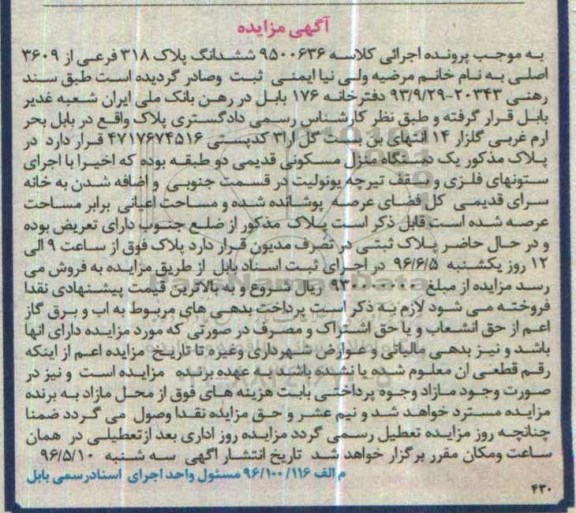 آگهی مزایده
به موجب پرونده اجرائی کلاسه ۹۵۰۰۶۳۶ ششدانگ پلاک ۳۱۸ فرعی از ۳۶۰۹
اصلی به نام خانم مرضیه ولی نیا ایمنی ثبت وصادر گردیده است طبق سند
رهنی ۲۰۳۴۳-۹۳/۹/۲۹ دفترخانه ۱۷۶ بابل در رهن بانک ملی ایران شعبه غدیر
بابل قرار گرفته و طبق نظر کارشناس رسمی دادگستری پلاک واقع در بابل بحر
ارم غربی گلزار ۱۴ انتهای بن بست گل ارا۳ کدپستی ۴۷۱۷۶۷۴۵۱۶ قرار دارد در
پلاک مذکور یک دستگاه منزل مسکونی قدیمی دو طبقه بوده که اخیرا با اجرای
ستونهای فلزی و سقف تیرچه یونولیت در قسمت جنوبی و اضافه شدن به خانه
سرای قدیمی کل فضای عرصه پوشانده شده و مساحت اعیانی برابر مساحت
عرصه شده است قابل ذکر است پلاک مذکور از ضلع جنوب دارای تعریض بوده
و در حال حاضر پلاک ثبتی در تصرف مدیون قرار دارد پلاک فوق از ساعت ۹ الی
۱۲ روز یکشنبه ۹۶/۶/۵ در اجرای ثبت اسناد بابل از طریق مزایده به فروش می
رسد مزایده از مبلغ ریال شروع و به بالاترین قیمت پیشنهادی نقدا
فروخته می شود لازم به ذکر است پرداخت بدهی های مربوط به اب و برق گاز
اعم از حق انشعاب و یا حق اشتراک و مصرف در صورتی که مورد مزایده دارای انها
باشد و نیز بدهی مالیاتی و عوارض شهرداری وغیره تا تاریخ مزایده اعم از اینکه
رقم قطعی ان معلوم شده یا نشده باشد به عهده برنده مزایده است و نیز در
صورت وجود مازاد وجوه پرداختی بابت هزینه های فوق از محل مازاد به برنده
مزایده مسترد خواهد شد و نیم عشر و حق مزایده نقدا وصول می گردد ضمنا
چنانچه روز مزایده تعطیل رسمی گردد مزایده روز اداری بعد ازتعطیلی در همان
ساعت ومکان مقرر برگزار خواهد شد تاریخ انتشار اگهی سه شنبه ۹۶/۵/۱۰
م الف ۹۶/۱۰۰/۱۱۶ مسئول واحد اجرای اسنادرسمی بابل
۴۳۰